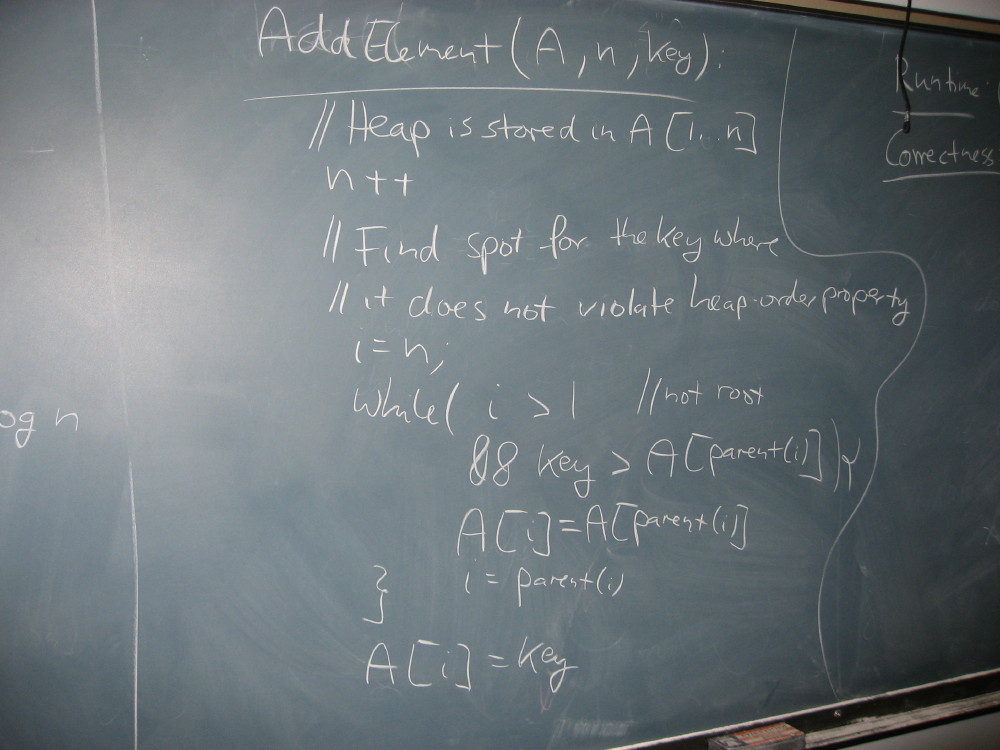 AddElement(A,n,key):
//Heap is stored in A[1...n]
n++
//Find spot for the key where
//it does not violate heap-order property
i=n;
while( i > 1 //not root
&& key > A[parent(i)]){
A[i]=A[parent(i)]
i = parent(i)
}
A[i] = key
og n
Runtime
Correctness